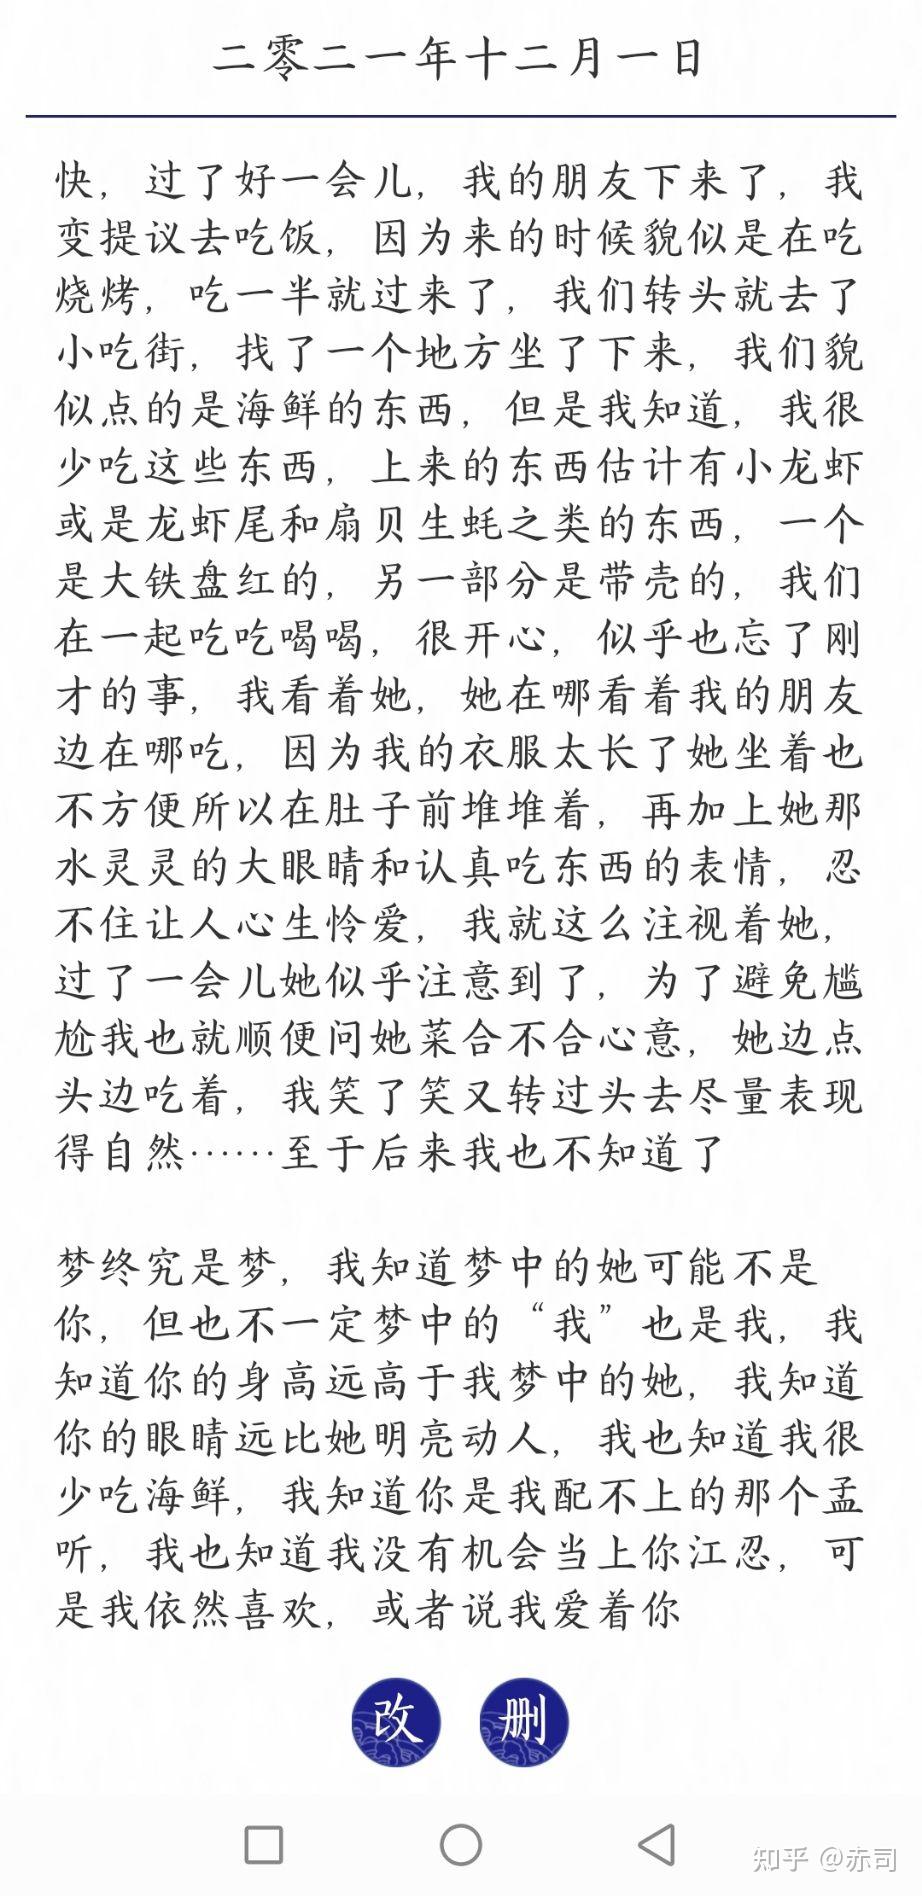 二零二一年十二月一日
快，过了好一会儿，我的朋友下来了，我
变提议去吃饭，因为来的时候貌似是在吃
烧烤，吃一半就过来了，我们转头就去了
小吃街，找了一个地方坐了下来，我们貌
似点的是海鲜的东西，但是我知道，我很
少吃这些东西，上来的东西估计有小龙虾
或是龙虾尾和扇贝生蚝之类的东西，一个
是大铁盘红的，另一部分是带壳的，我们
在一起吃吃喝喝，很开心，似乎也忘了刚
才的事，我看着她，她在哪看着我的朋友
边在哪吃，因为我的衣服太长了她坐着也
不方便所以在肚子前堆堆着，再加上她那
水灵灵的大眼睛和认真吃东西的表情，忍
不住让人心生怜爱，我就这么注视着她，
过了一会儿她似乎注意到了，为了避免尴
尬我也就顺便问她菜合不合心意，她边点
头边吃着，我笑了笑又转过头去尽量表现
得自然……至于后来我也不知道了
梦终究是梦，我知道梦中的她可能不是
你，但也不一定梦中的“我”也是我，我
知道你的身高远高于我梦中的她，我知道
你的眼睛远比她明亮动人，我也知道我很
少吃海鲜，我知道你是我配不上的那个孟
听，我也知道我没有机会当上你江忍，可
是我依然喜欢，或者说我爱着你
改 删
知乎 @赤司